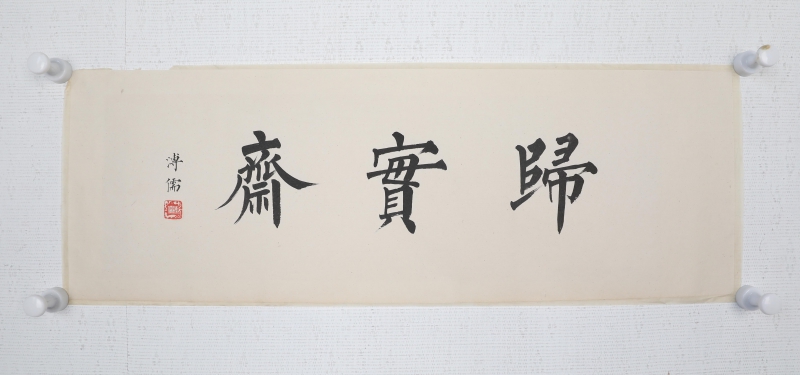 歸實齋
溥儒